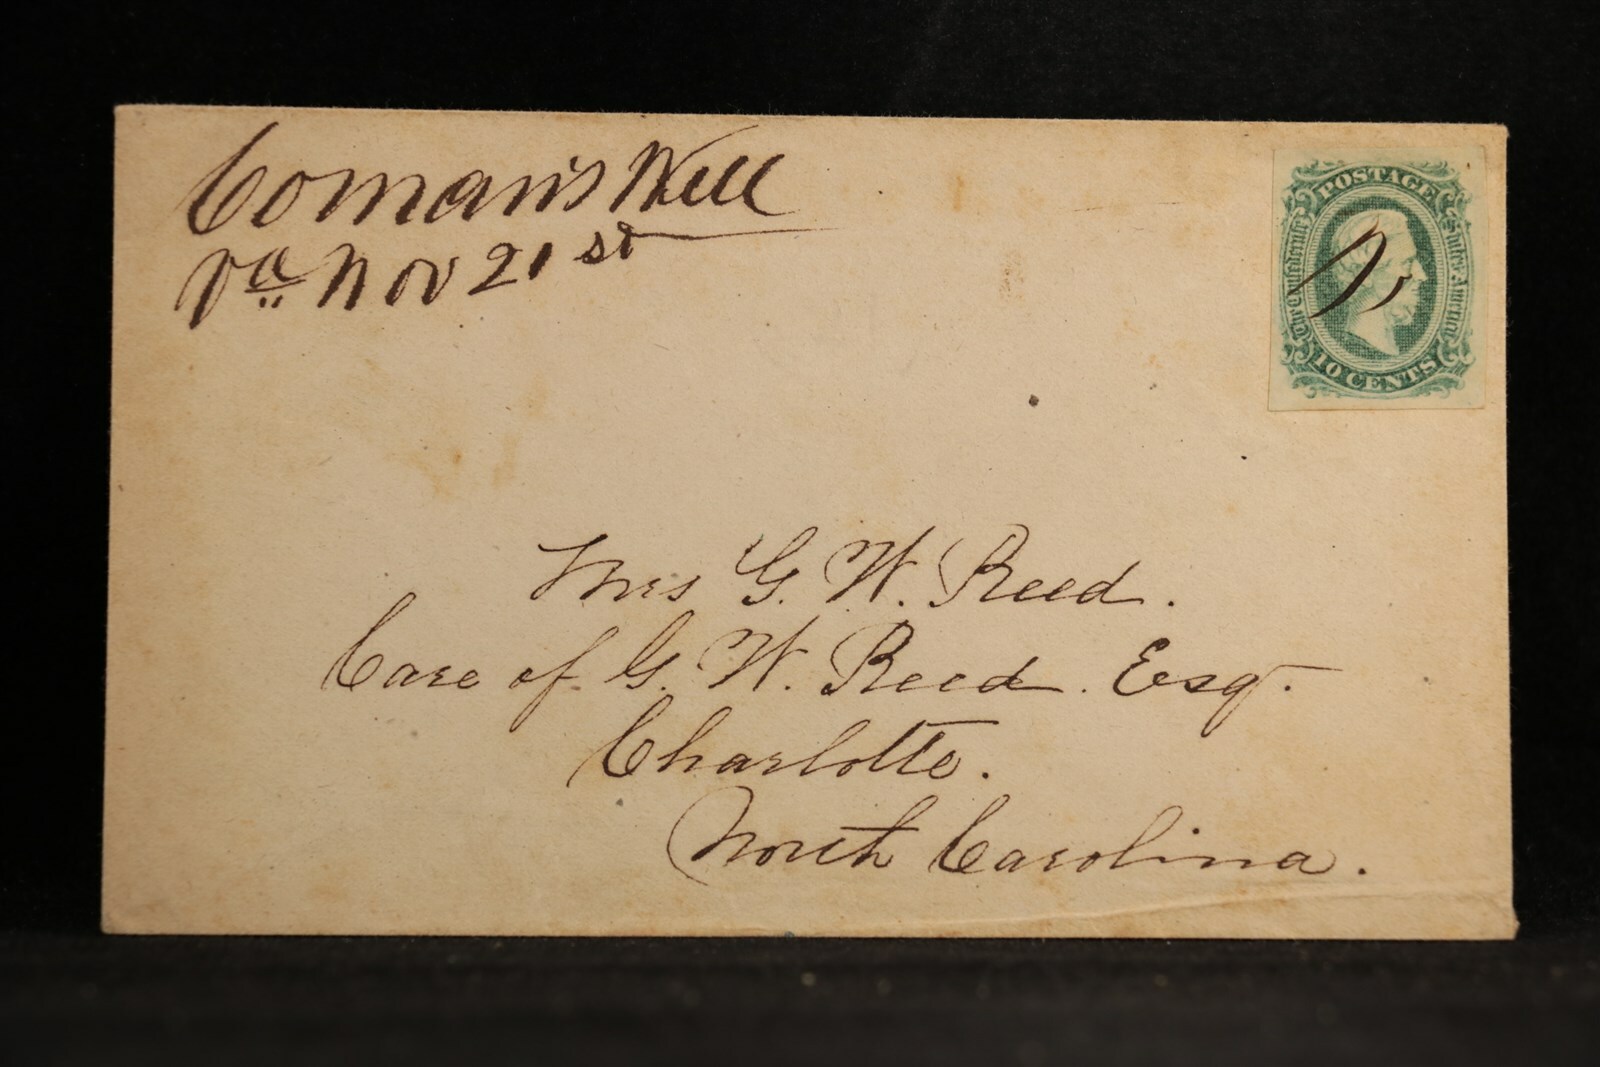 Coman's Well
Va Nov 21st
POSTAGE
The Confederate States of America
10 CENTS
Mrs G. W. Reed.
Care of G. W. Reed. Esq.
Charlotte.
North Carolina.